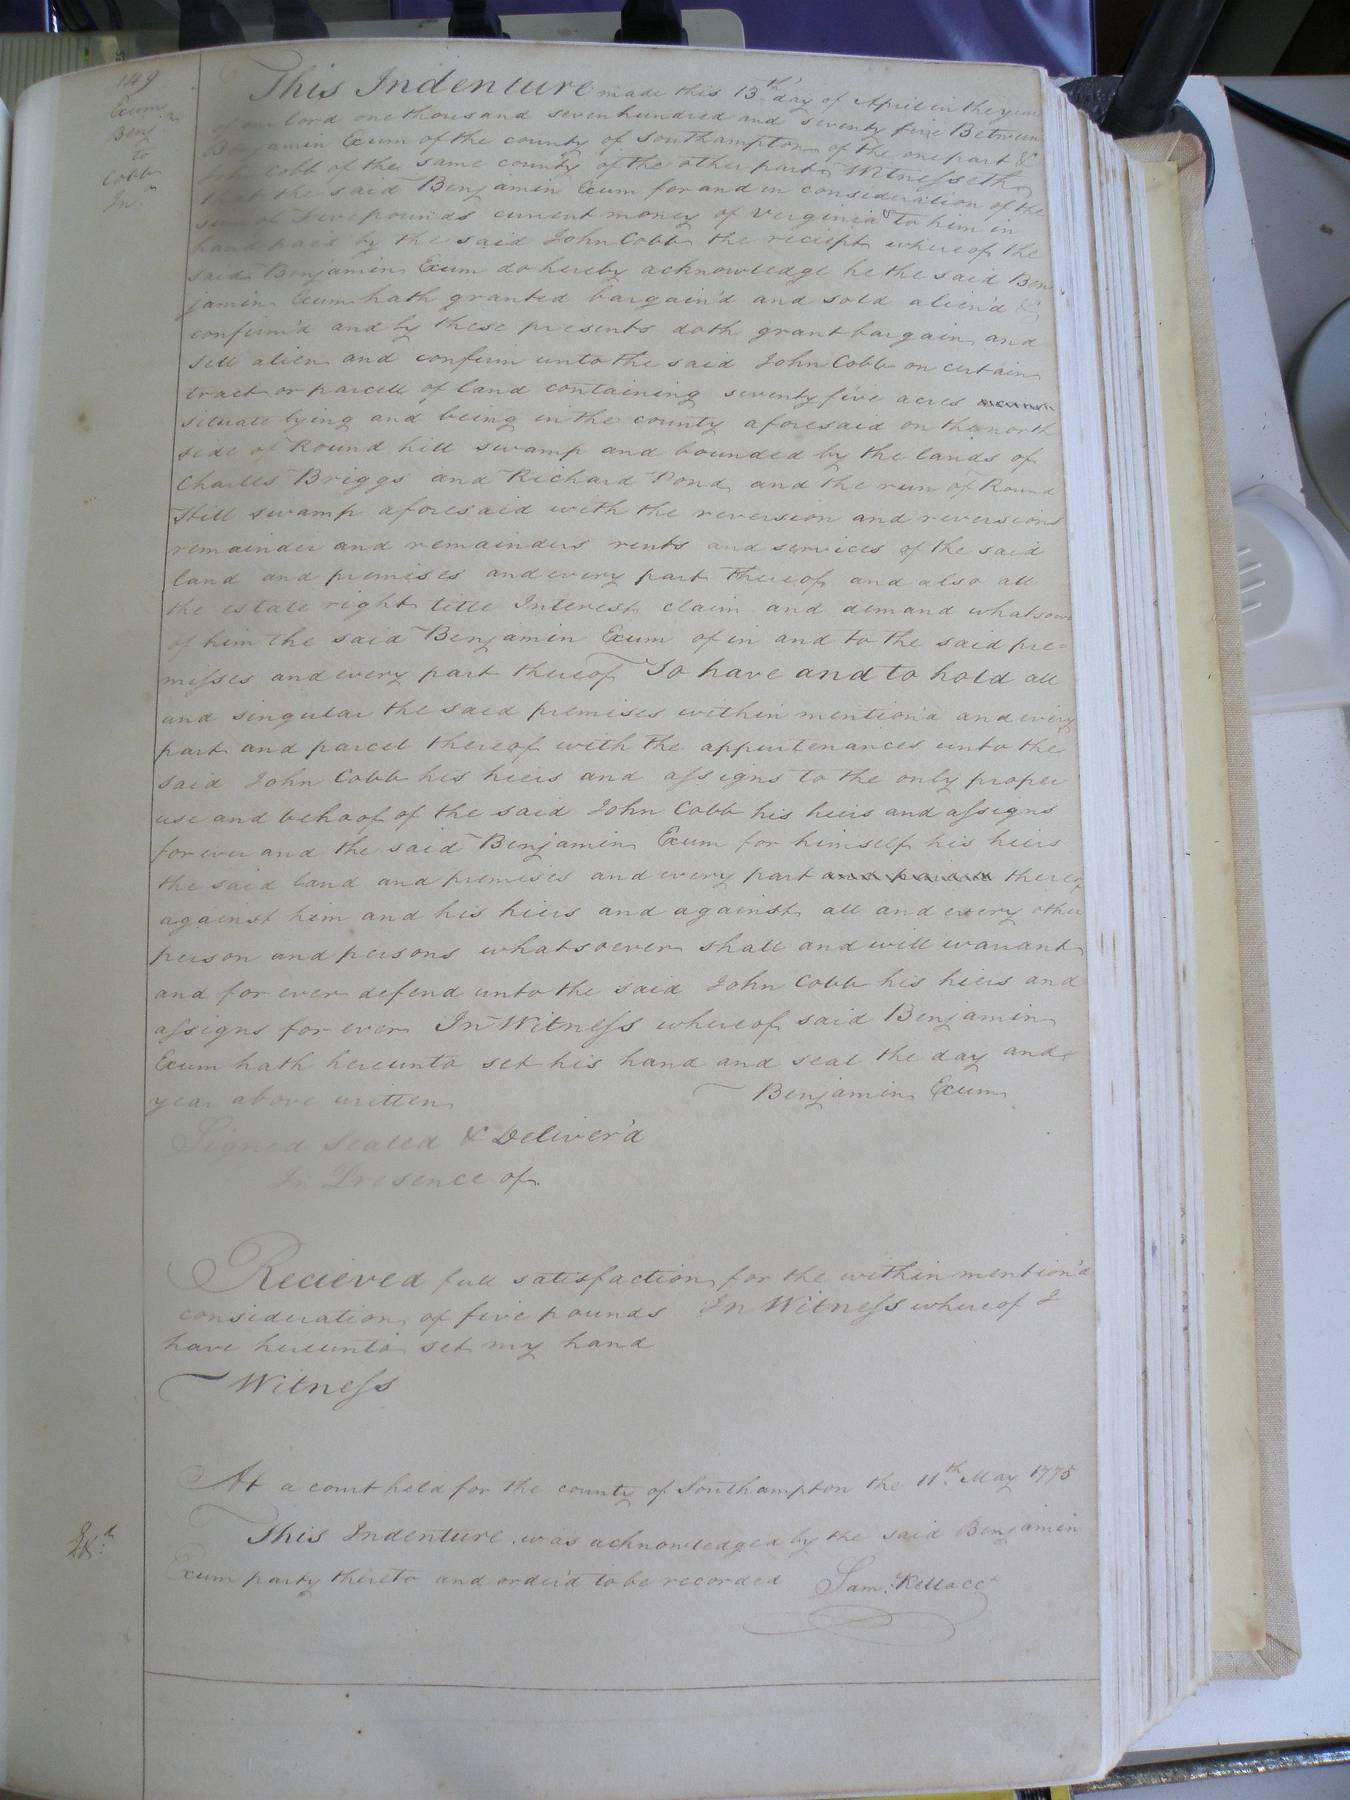 149
Exum
Benj.n
to
Cobb
Jn.o
This Indenture made this 13th day of April in the year
of our lord one thousand seven hundred and seventy five Between
Benjamin Exum of the county of Southampton of the one part &
John Cobb of the same county of the other part Witnesseth
that the said Benjamin Exum for and in consideration of the
sum of Five pounds current money of Virginia to him in
hand paid by the said John Cobb the reciept whereof the
said Benjamin Exum do hereby acknowledge he the said Ben
jamin Exum hath granted bargain'd and sold alien'd &
confirm'd and by these presents doth grant bargain and
sell alien and confirm unto the said John Cobb on certain
tract or parcell of land containing seventy five acres
situate lying and being in the county aforesaid on the north
side of Round hill swamp and bounded by the lands of
Charles Briggs and Richard Pond and the run of Round
Hill swamp aforesaid with the reversion and reversions
remainder and remainders rents and services of the said
land and premises and every part thereof and also all
the estate right title Interest claim and demand whatsoever
of him the said Benjamin Exum of in and to the said pre=
misses and every part thereof To have and to hold all
and singular the said premises within mention'd and every
part and parcel thereof with the appurtenances unto the
said John Cobb his heirs and assigns to the only proper
use and behoof of the said John Cobb his heirs and assigns
for ever and the said Benjamin Exum for himself his heirs
the said land and premises and every part thereof
against him and his heirs and against all and every other
person and persons whatsoever shall and will warrant
and for ever defend unto the said John Cobb his heirs and
assigns for ever In Witness whereof said Benjamin
Exum hath hereunto set his hand and seal the day and
year above written Benjamin Exum
Signed Sealed & Deliver'd
In Presence of
Recieved full satisfaction for the within mention'd
consideration of five pounds In Witness whereof I
have hereunto set my hand
Witness
At a court held for the county of Southampton the 11th May 1775
This Indenture was acknowledged by the said Benjamin
Exum party thereto and order'd to be recorded Sam: